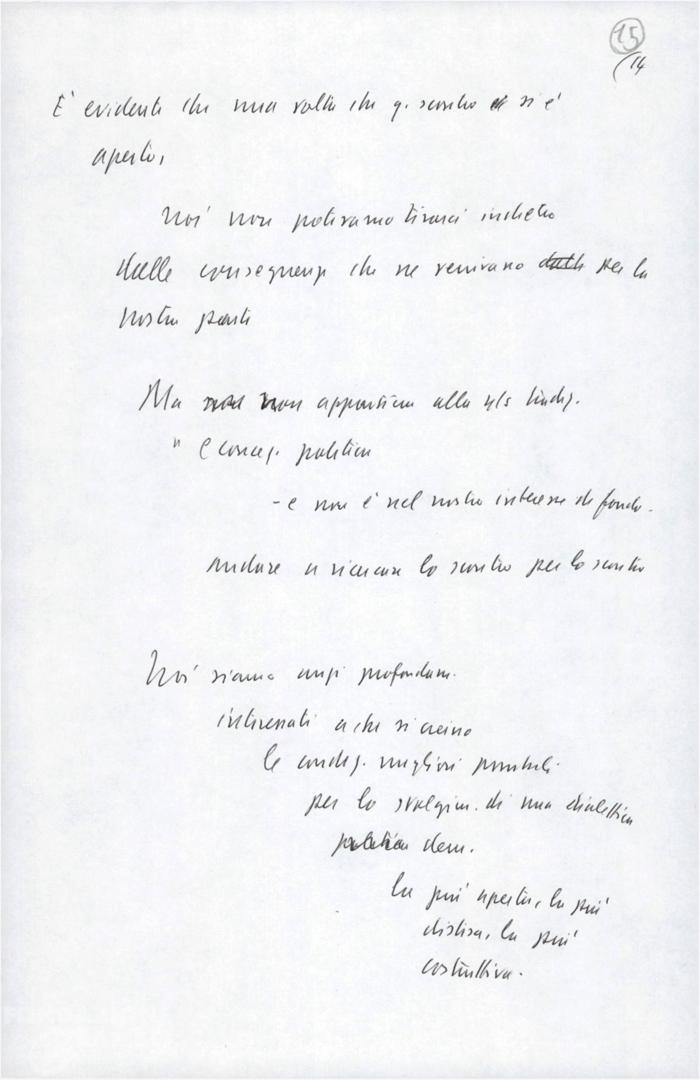 15
(14
È evidente che una volta che q. scontro si è
aperto,
Noi non potevamo tirarci indietro
dalle conseguenze che ne venivano dalla per la
nostra parte
Ma non appartiene alla ns tradiz.
" concez. politica
- e non è nel nostro interesse di fondo -
andare a ricercare lo scontro per lo scontro
Noi siamo anzi profondam.
interessati a che si creino
le condiz. migliori possibili
per lo svolgim. di una dialettica
politica dem.
la più aperta, la più
distesa, la più
costruttiva.